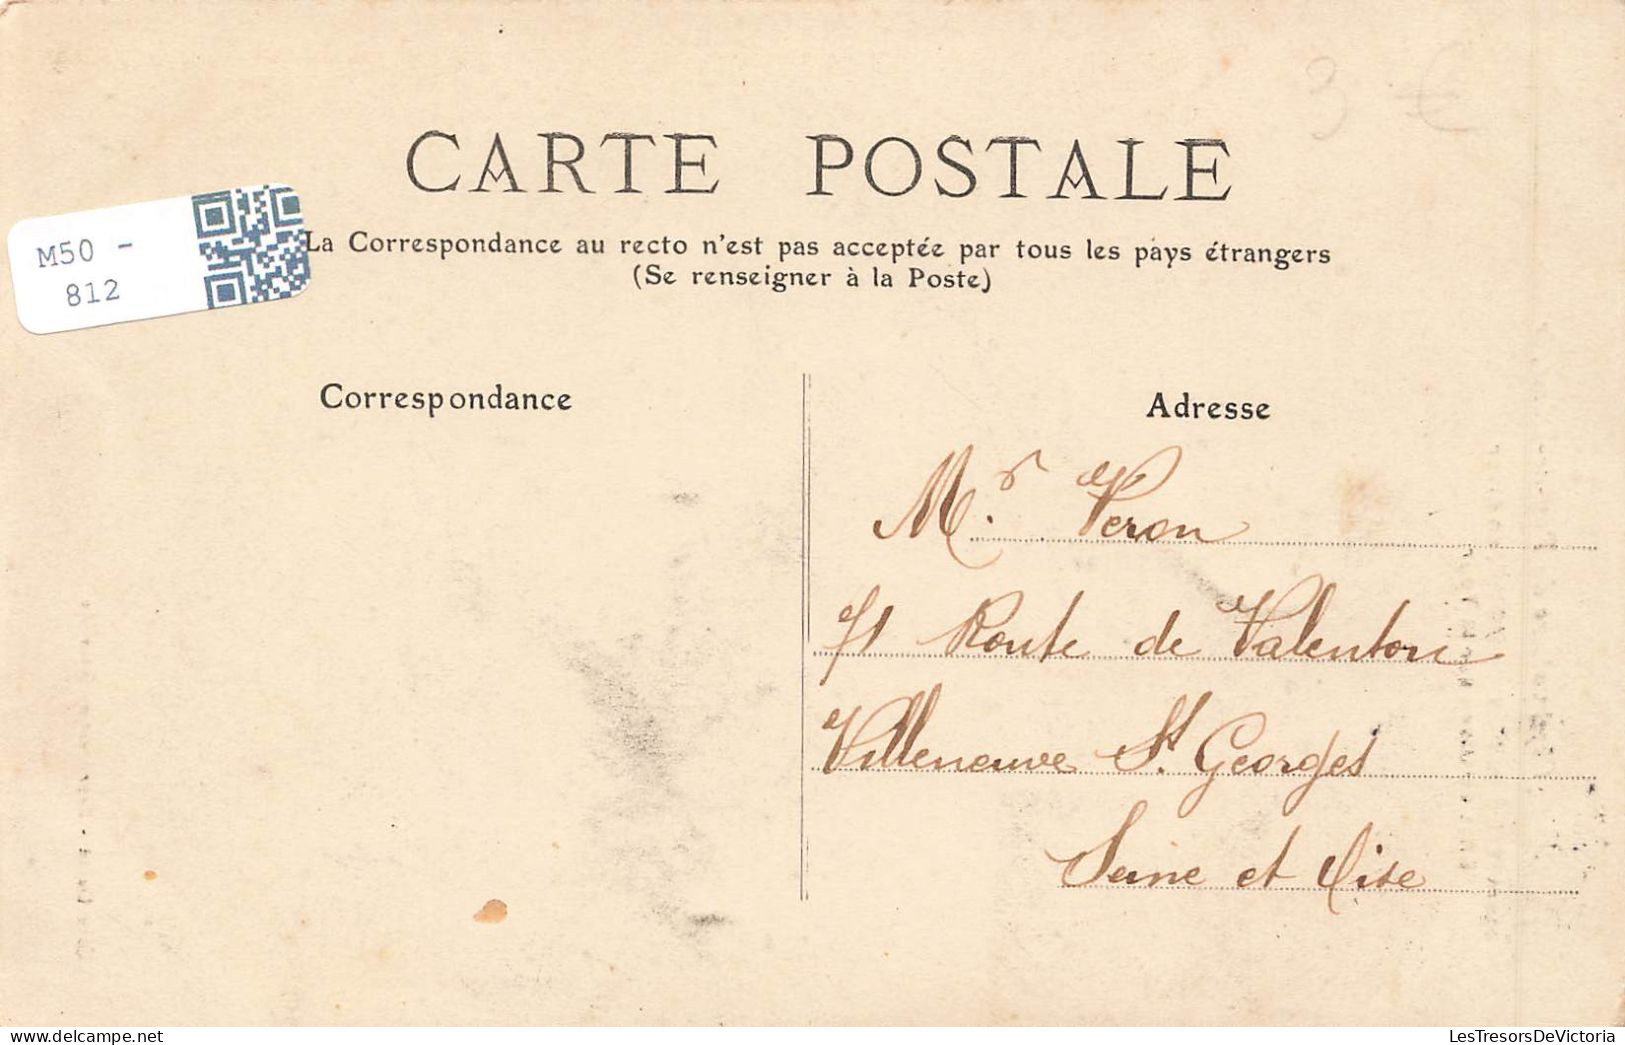 3 €
CARTE POSTALE
La Correspondance au recto n'est pas acceptée par tous les pays étrangers
(Se renseigner à la Poste)
M50 -
812
Correspondance
Adresse
Mr. Veron
71 Route de Valenton
Villeneuve St. Georges
Seine et Oise
LesTresorsDeVictoria
delcampe.net